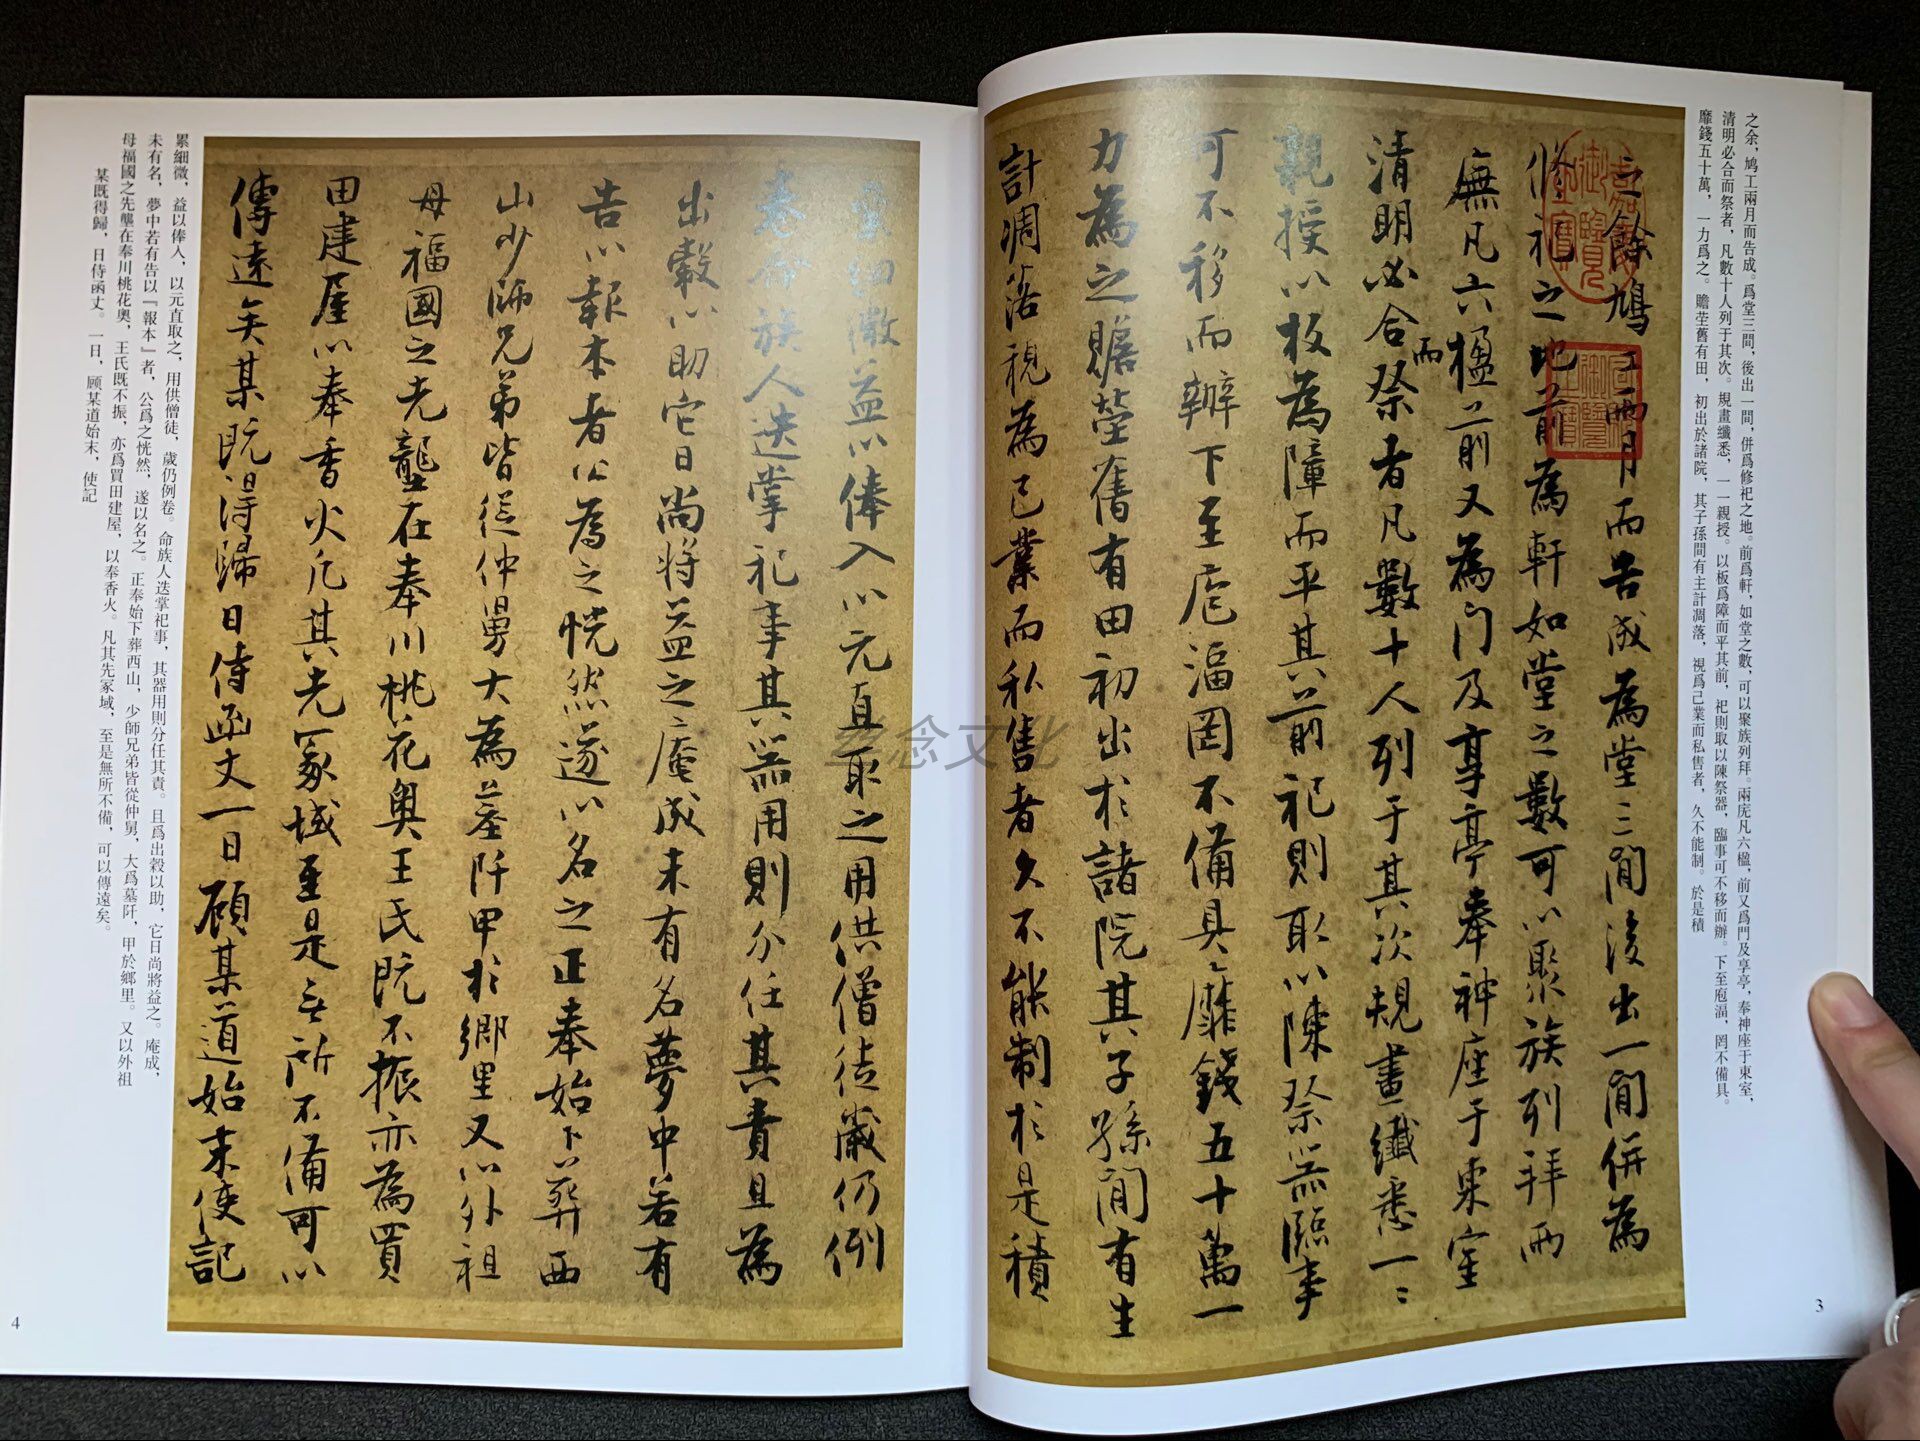 之余，鳩工兩月而告成。爲堂三間，後出一間，併爲修祀之地。前爲軒，如堂之數，可以聚族列拜。兩庑凡六楹，前又爲門及享亭，奉神座于東室，
清明必合而祭者，凡數十人列于其次。規畫纖悉，一一親授。以板爲障而平其前，祀則取以陳祭器，臨事可不移而辦。下至庖湢，罔不備具。
靡錢五十萬，一力爲之。贍茔舊有田，初出於諸院，其子孫間有主計凋落，視爲己業而私售者，久不能制。於是積
之餘鳩工兩月而告成為堂三間後出一間併為
脩祀之地前為軒如堂之數可以聚族列拜兩
廡凡六楹前又為門及享亭奉神座于東室
清明必合而祭者凡數十人列于其次規畫纖悉一一
親授以板為障而平其前祀則取以陳祭器臨事
可不移而辦下至庖湢罔不備具靡錢五十萬一
力為之贍塋舊有田初出於諸院其子孫間有生
計凋落視為己業而私售者久不能制於是積
3
累細微益以俸入以元直取之用供僧徒歲仍例
卷命族人迭掌祀事其器用則分任其責且為
出穀以助它日尚將益之庵成未有名夢中若有
告以報本者公為之恍然遂以名之正奉始卜葬西
山少師兄弟皆從仲舅大為墓阡甲於鄉里又以外祖
母福國之先壟在奉川桃花奧王氏既不振亦為買
田建屋以奉香火凡其先冢域至是無所不備可以
傳遠矣某既得歸日侍函丈一日顧某道始末使記
累細微，益以俸人，以元直取之，用供僧徒，歲仍例卷。命族人迭掌祀事，其器用則分任其責。且爲出穀以助，它日尚將益之。庵成，
未有名，夢中若有告以『報本』者，公爲之恍然，遂以名之。正奉始下葬西山，少師兄弟皆從仲舅，大爲墓阡，甲於鄉里。又以外祖
母福國之先壟在奉川桃花奧，王氏既不振，亦爲買田建屋，以奉香火。凡其先冢域，至是無所不備，可以傳遠矣。
某既得歸，日侍函丈。一日，顾某道始末，使記
4
念文化